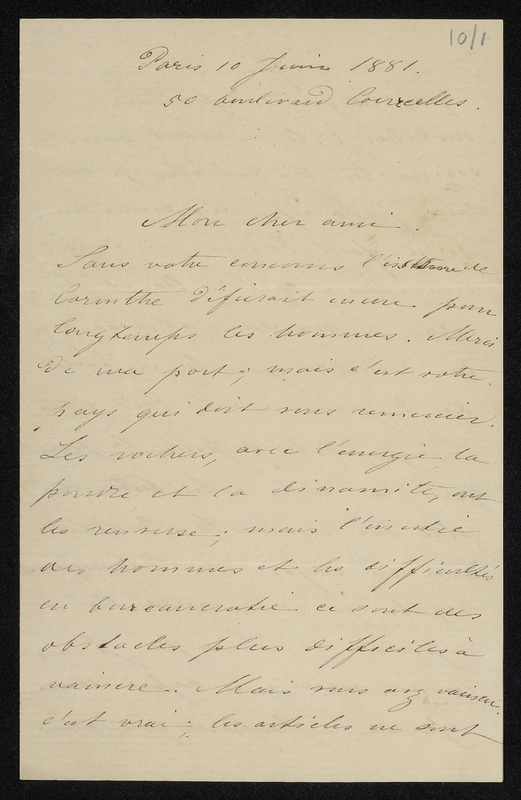 10/1
Paris 10 Juin 1881.
50 boulevard Courcelles.
Mon cher ami.
Sans votre concours l'isthme de
Corinthe défierait encore pour
longtemps les hommes. Merci
de ma part; mais c'est votre
pays qui doit vous remercier.
Les rochers, avec l'énergie, la
poudre et la dinamite, ont
les renverse; mais l'inertie
des hommes et les difficultés
en bureaucratie ce sont des
obstacles plus difficiles à
vaincre. Mais vous avez vaincu.
c'est vrai; les articles ne sont